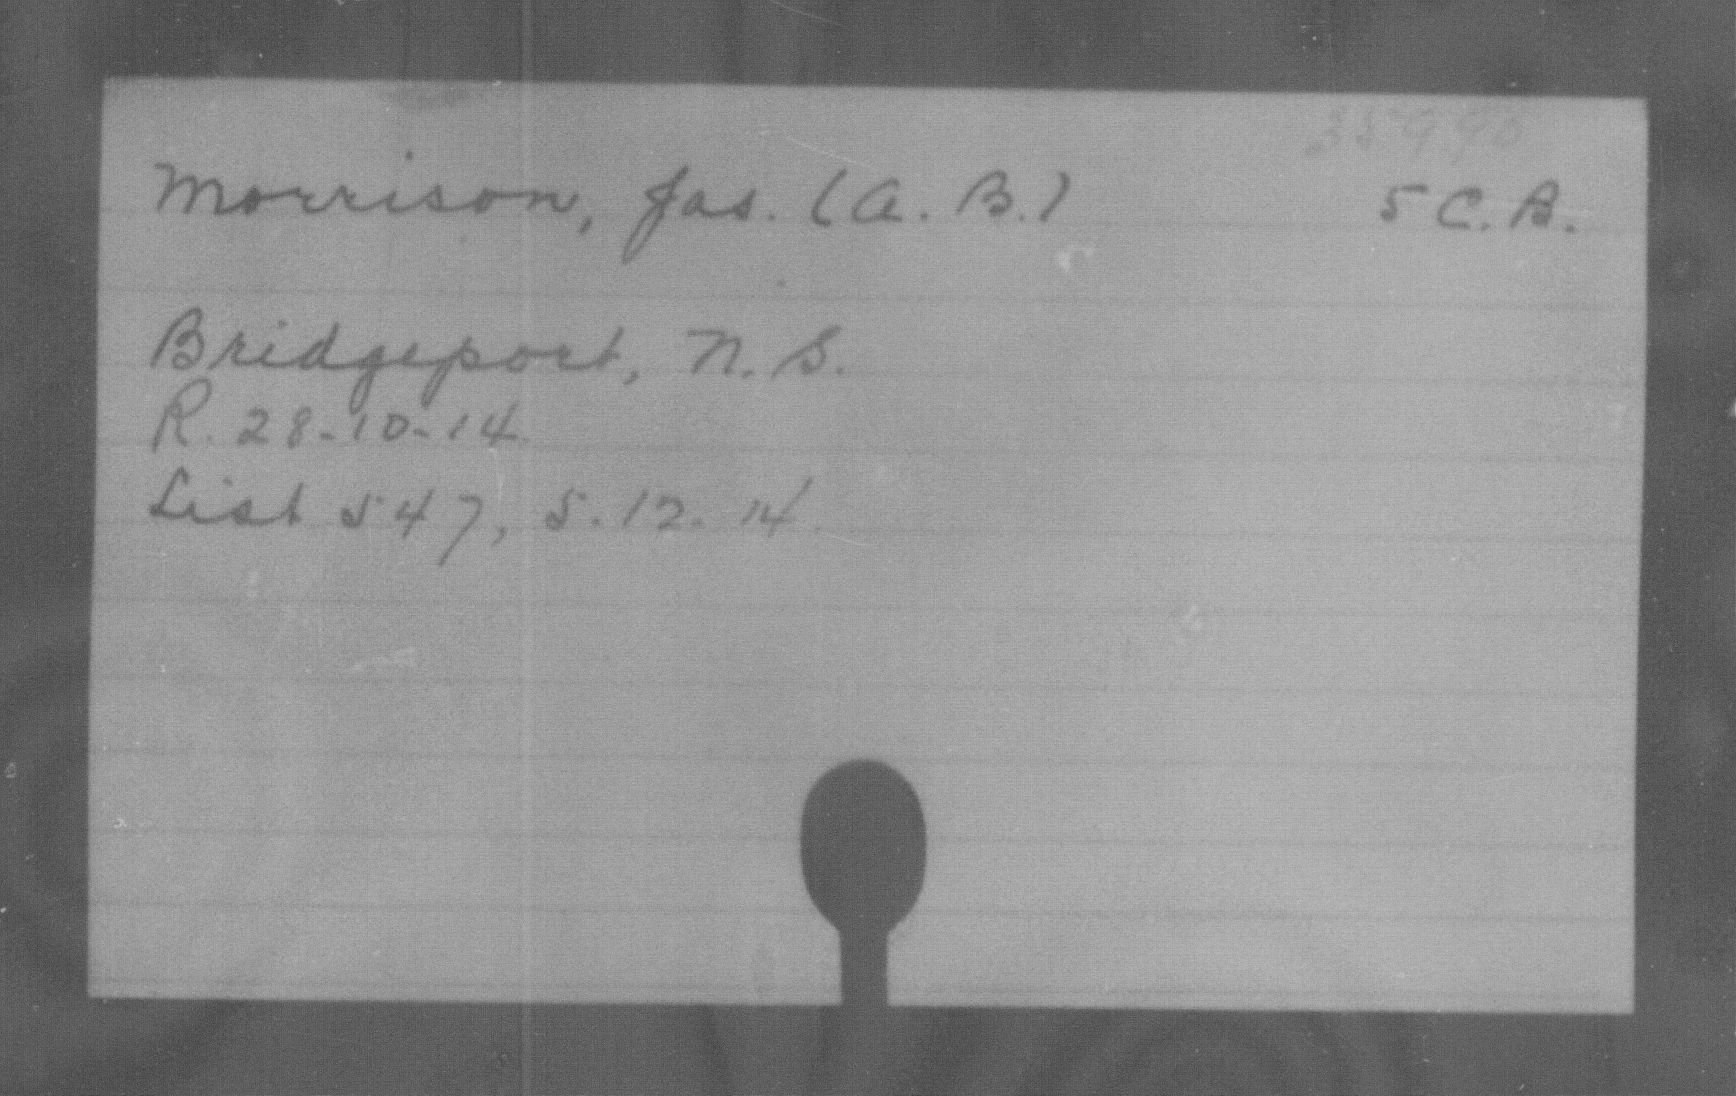 35990
Morrison, Jas. (A. B.) 5 C. B.
Bridgeport, N. S.
R. 28-10-14.
List 547, 5.12.14.